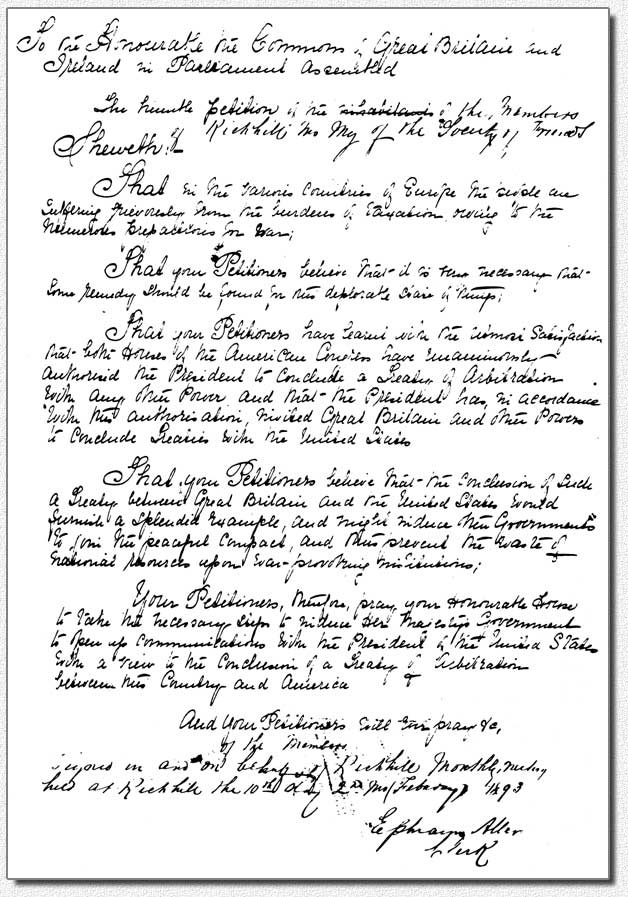 To the Honourable the Commons of Great Britain and
Ireland in Parliament Assembled
The humble petition of the inhabitants of the Members
Richhill Mo Mtg of the Society of Friends
Sheweth:
That in the various Countries of Europe the people are
suffering grievously from the burdens of taxation owing to the
numerous preparations for War;
That your Petitioners believe that it is very necessary that
some remedy should be found for this deplorable state of things;
That your Petitioners have learnt with the utmost satisfaction
that both Houses of the American Congress have unanimously
authorised the President to conclude a Treaty of Arbitration
with any other Power, and that the President has, in accordance
with this authorisation, invited Great Britain and other Powers
to conclude Treaties with the United States
That your Petitioners believe that the conclusion of such
a Treaty between Great Britain and the United States would
furnish a splendid example, and might induce other Governments
to join the peaceful compact, and thus prevent the waste of
national resources upon war-provoking institutions;
Your Petitioners, therefore, pray your Honourable House
to take the necessary steps to induce Her Majesty's Government
to open up communications with the President of the United States
with a view to the conclusion of a Treaty of Arbitration
between this Country and America
And your Petitioners will ever pray &c,
of the Members
Signed in and on behalf of Richhill Monthly Meeting
held at Richhill the 10th day 2nd Mo (February) 1893
Ephraim Allen
Clerk